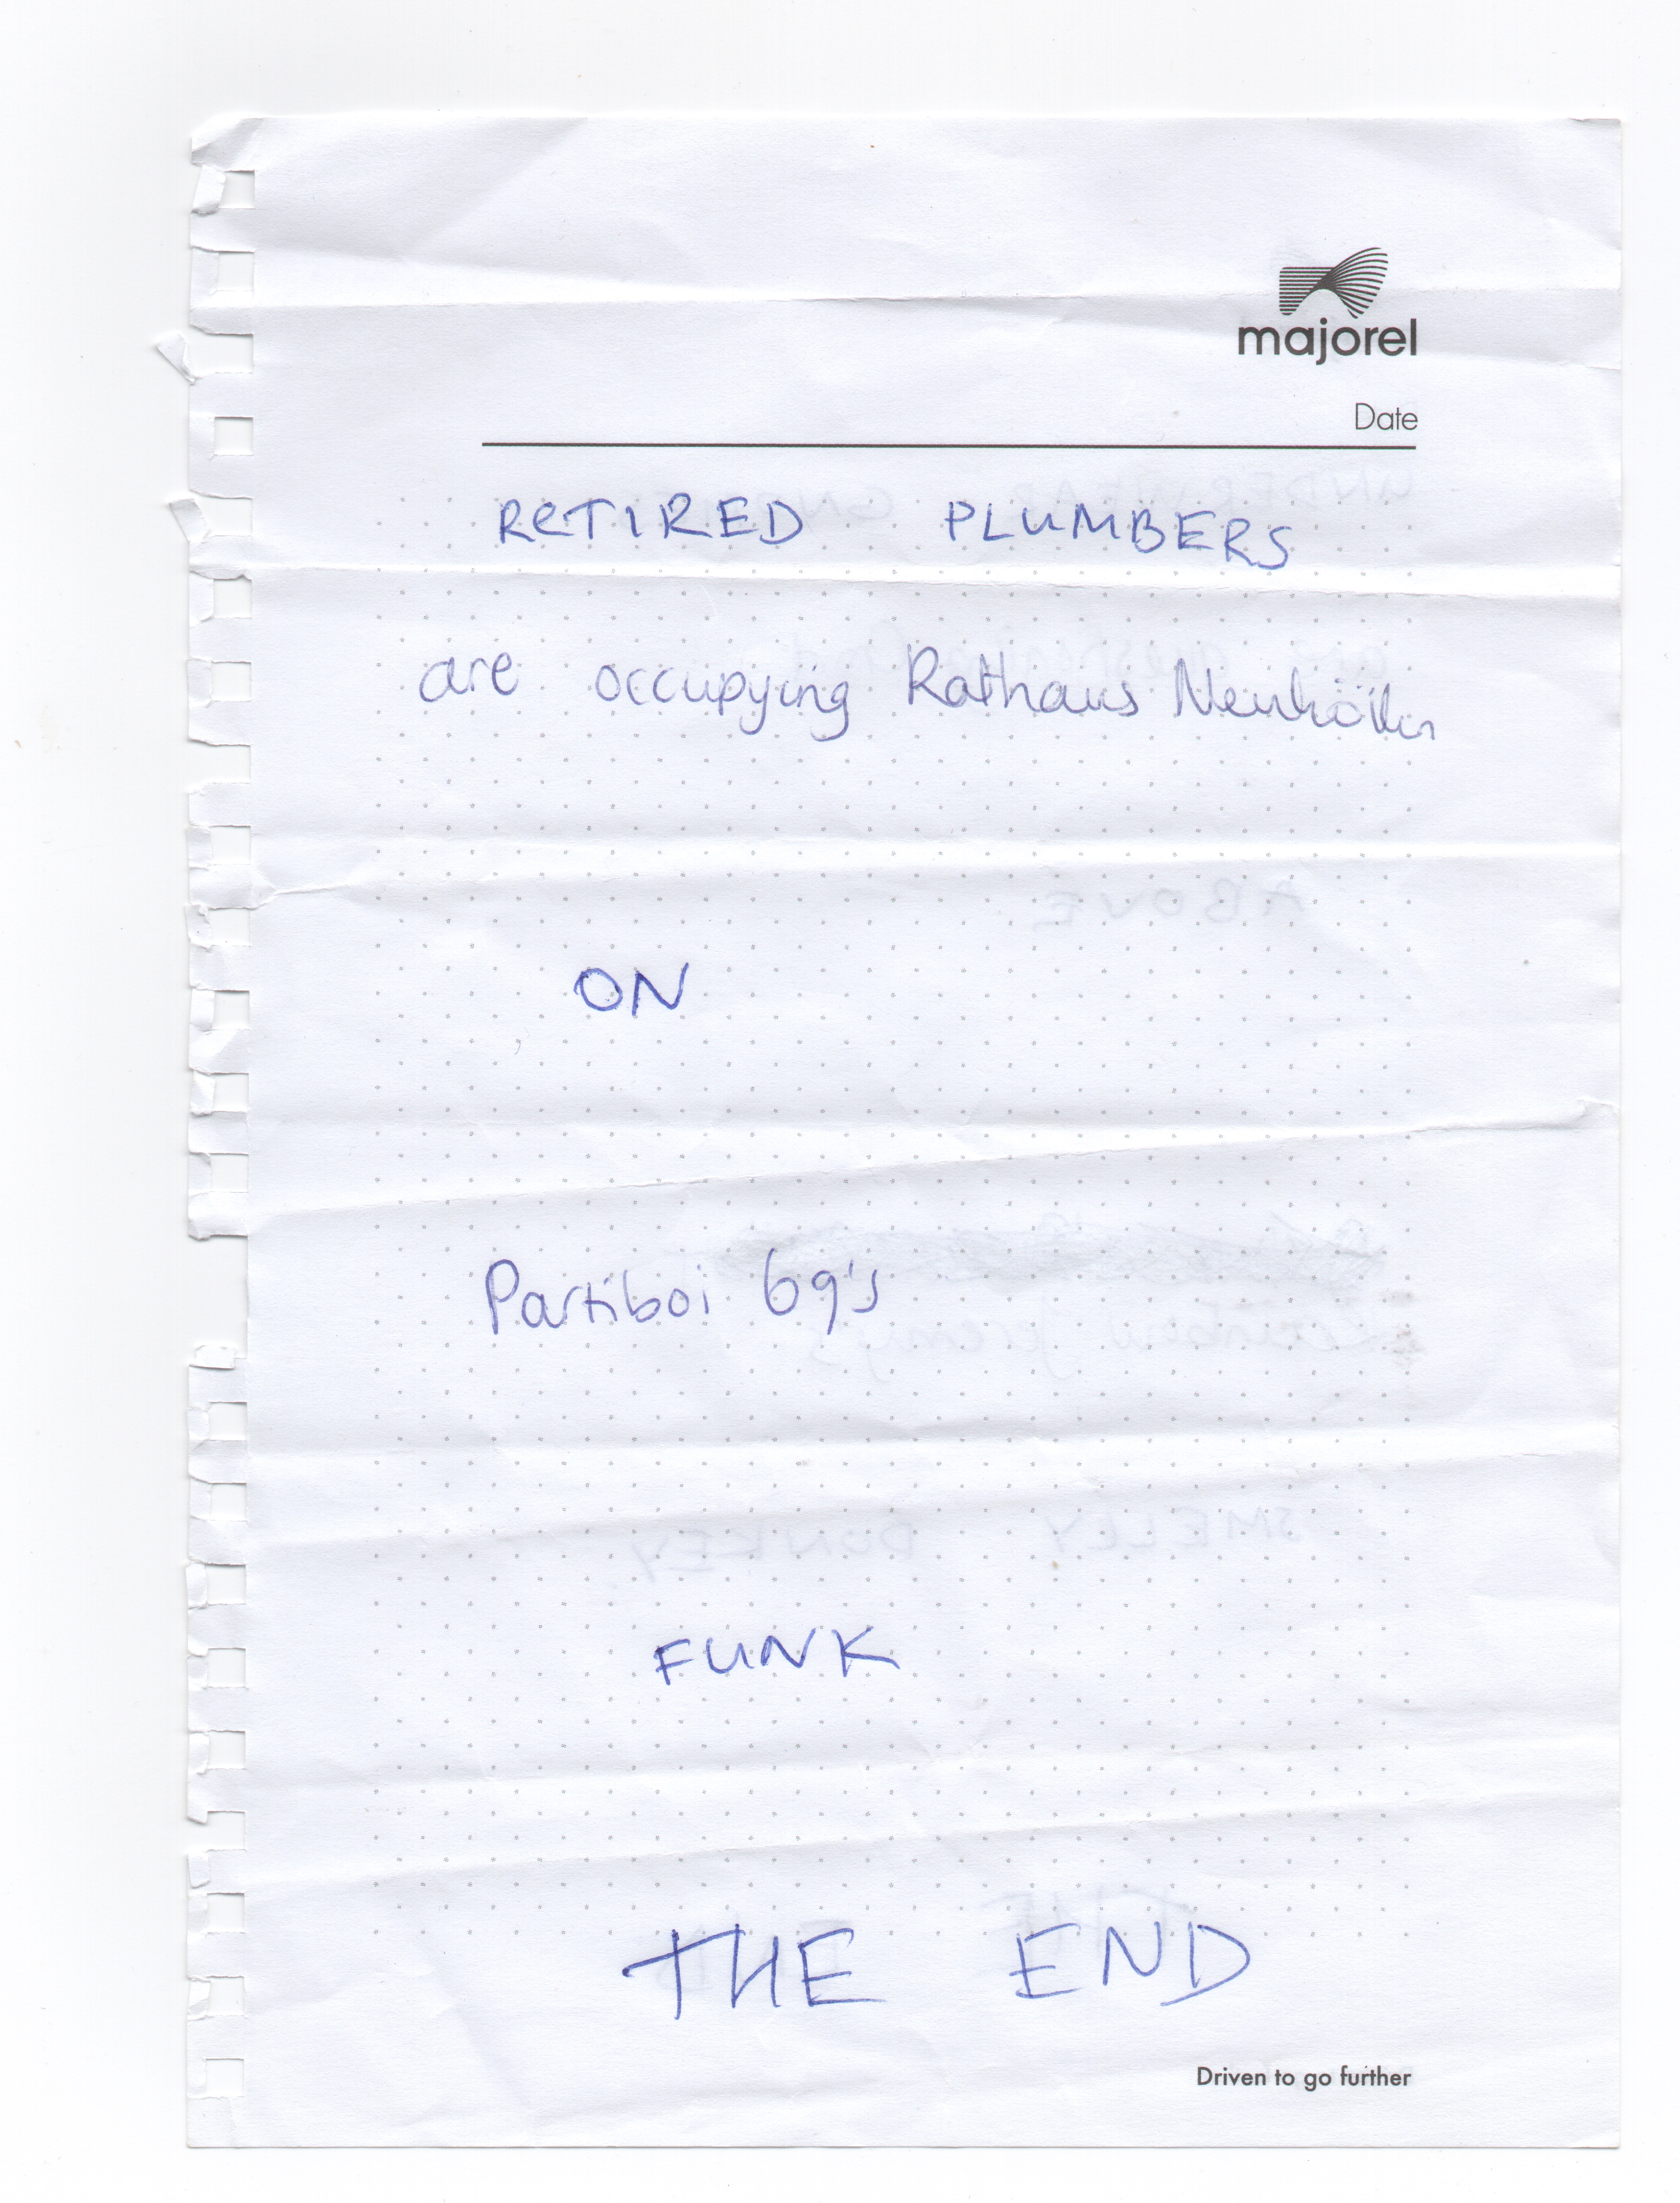 majorel
Date
RETIRED PLUMBERS
are occupying Rathaus Neukölln
ON
Partiboi 69's
FUNK
THE END
Driven to go further